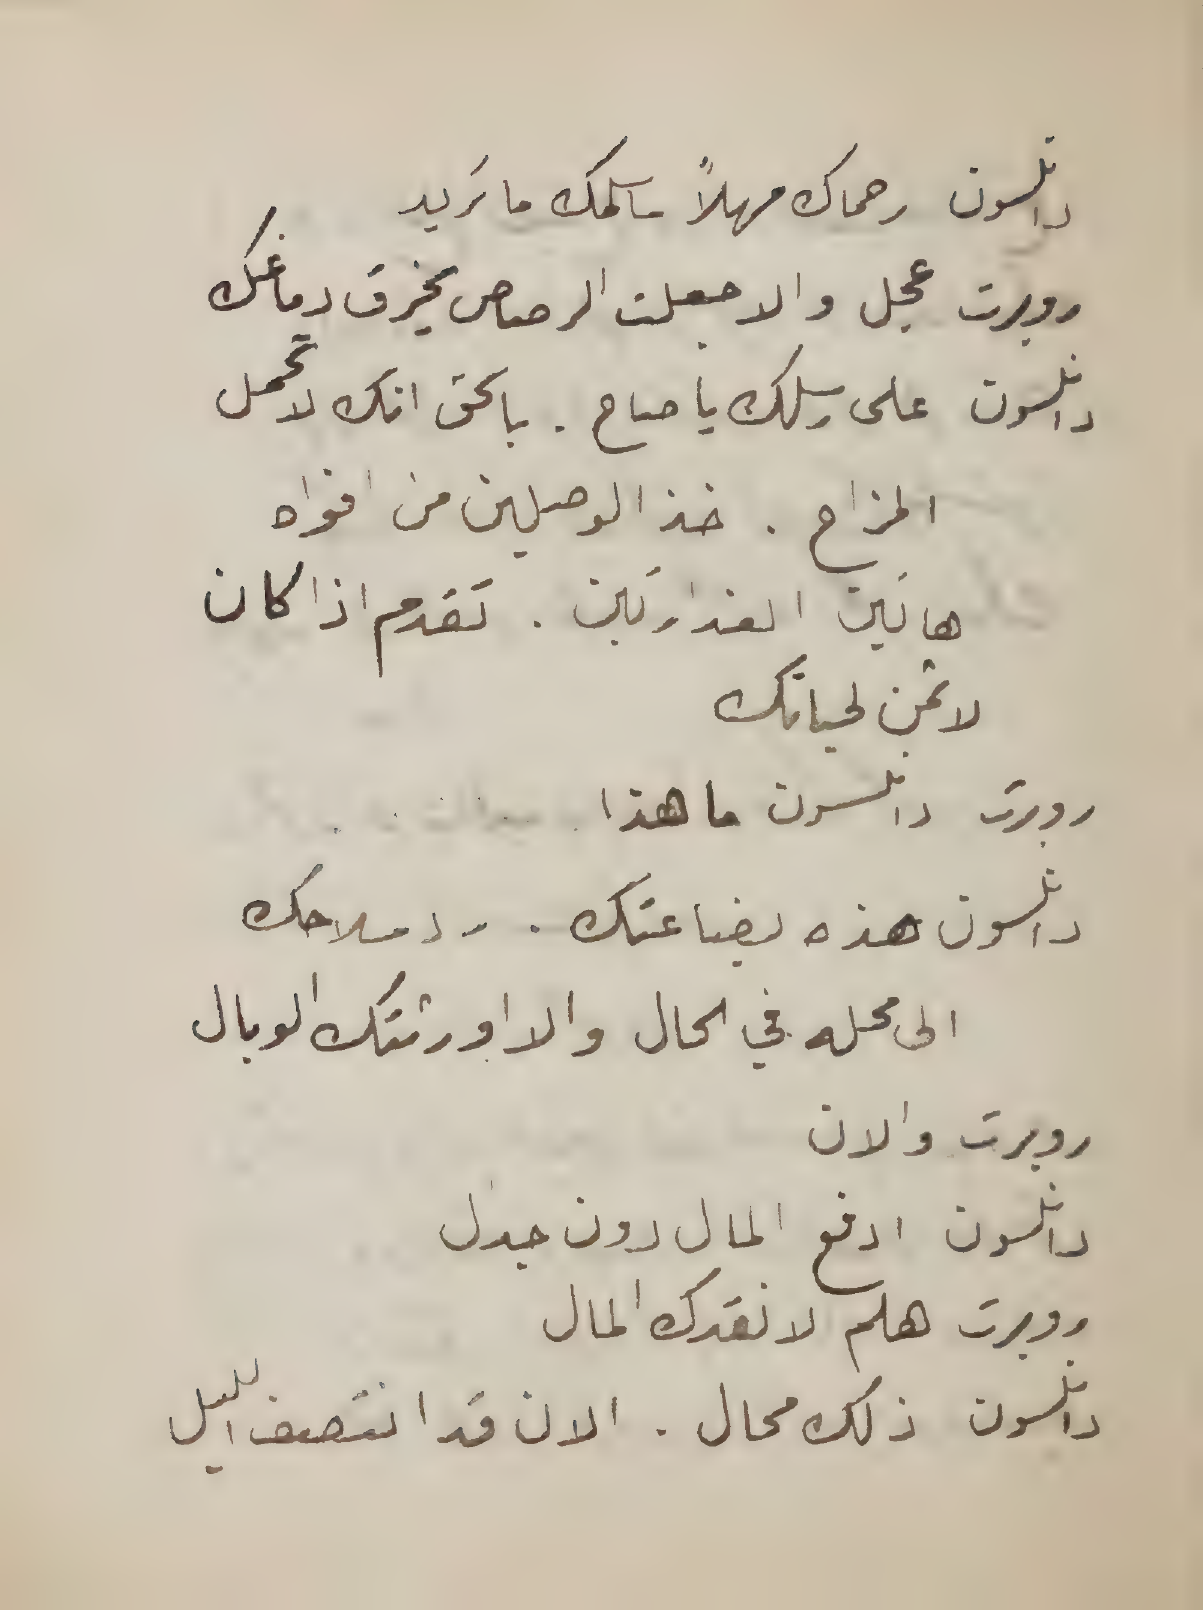 دانلسون رحماك مهلاً سأسلمك ما تريد
روبرت عجل والا جعلت الرصاص يخرق دماغك
دانلسون على رسلك يا صاح . بالحق انك لا تحمل
المزاح . خذ الوصلين من افواه
هاتين الغدارتين . تقدم اذا كان
لا ثمن لحياتك
روبرت دانلسون ما هذا . . . .
دانلسون هذه بضاعتك . رد سلاحك
الى محله في الحال والا اورثتك الوبال
روبرت والان
دانلسون ادفع المال دون جدال
روبرت هلم لانقدك المال
دانلسون ذلك محال . الان قد انتصف الليل